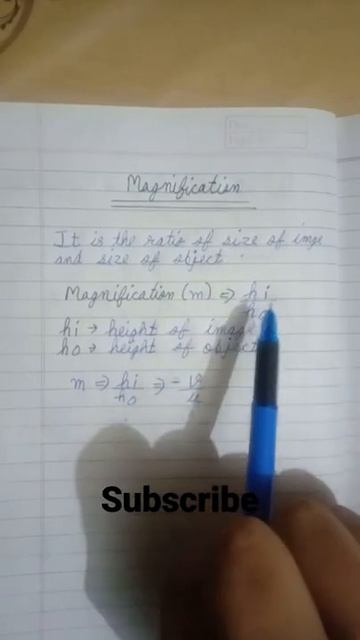 Magnification
It is the ratio of size of imge
and size of object.
Magnification (m) ⇒ hi
ho
hi → height of image
ho → height of object
m ⇒ hi/ho ⇒ - v/u
Subscribe